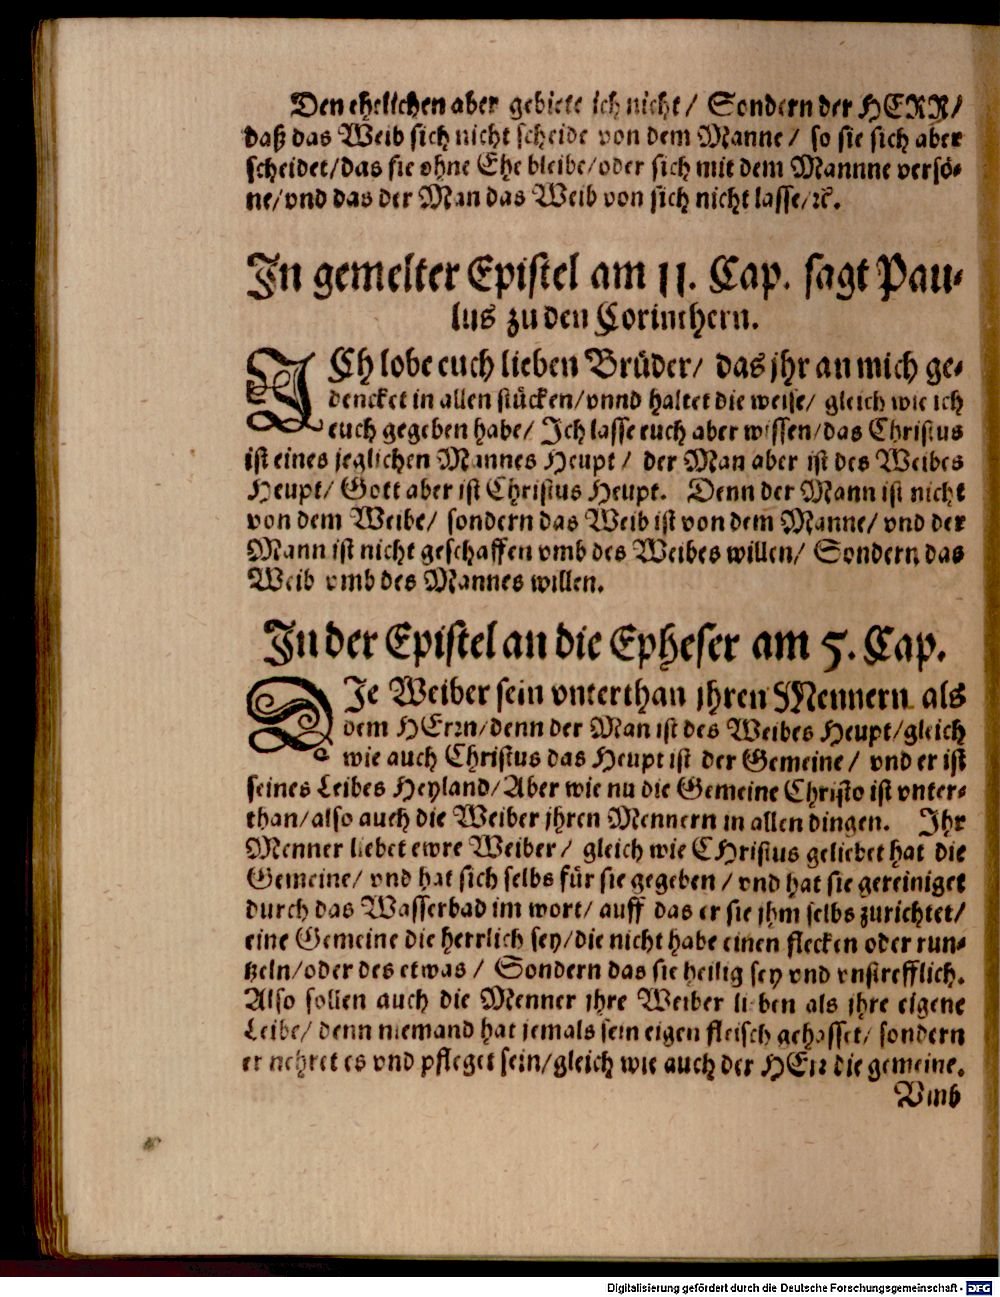 Den ehelichen aber gebiete ich nicht/ Sondern der HERR/
daß das Weib sich nicht scheide von dem Manne/ so sie sich aber
scheidet/das sie ohne Ehe bleibe/oder sich mit dem Mannne versö-
ne/vnd das der Man das Weib von sich nicht lasse/ꝛc.
In gemelter Epistel am 11. Cap. sagt Pau-
lus zu den Corinthern.
ICh lobe euch lieben Brüder/ das jhr an mich ge-
dencket in allen stücken/vnnd haltet die weise/ gleich wie ich
euch gegeben habe/ Ich lasse euch aber wissen/das Christus
ist eines jeglichen Mannes Heupt/ der Man aber ist des Weibes
Heupt/ Gott aber ist Christus Heupt. Denn der Mann ist nicht
von dem Weibe/ sondern das Weib ist von dem Manne/ vnd der
Mann ist nicht geschaffen vmb des Weibes willen/ Sondern das
Weib vmb des Mannes willen.
In der Epistel an die Epheser am 5. Cap.
DIe Weiber sein vnterthan jhren Mennern als
dem HErrn/denn der Man ist des Weibes Heupt/gleich
wie auch Christus das Heupt ist der Gemeine/ vnd er ist
seines Leibes Heyland/Aber wie nu die Gemeine Christo ist vnter-
than/also auch die Weiber jhren Mennern in allen dingen. Ihr
Menner liebet ewre Weiber/ gleich wie CHristus geliebet hat die
Gemeine/ vnd hat sich selbs für sie gegeben/ vnd hat sie gereiniget
durch das Wasserbad im wort/ auff das er sie jhm selbs zurichtet/
eine Gemeine die herrlich sey/die nicht habe einen flecken oder run-
tzeln/oder des etwas/ Sondern das sie heilig sey vnd vnstrefflich.
Also sollen auch die Menner jhre Weiber lieben als jhre eigene
Leibe/ denn niemand hat jemals sein eigen fleisch gehasset/ sondern
er nehret es vnd pfleget sein/gleich wie auch der HErr die gemeine.
Vmb
Digitalisierung gefördert durch die Deutsche Forschungsgemeinschaft - DFG